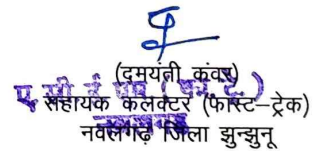 (दमयंती कंवर)
सहायक कलेक्टर (फास्ट-ट्रेक)
नवलगढ़ जिला झुन्झुनू